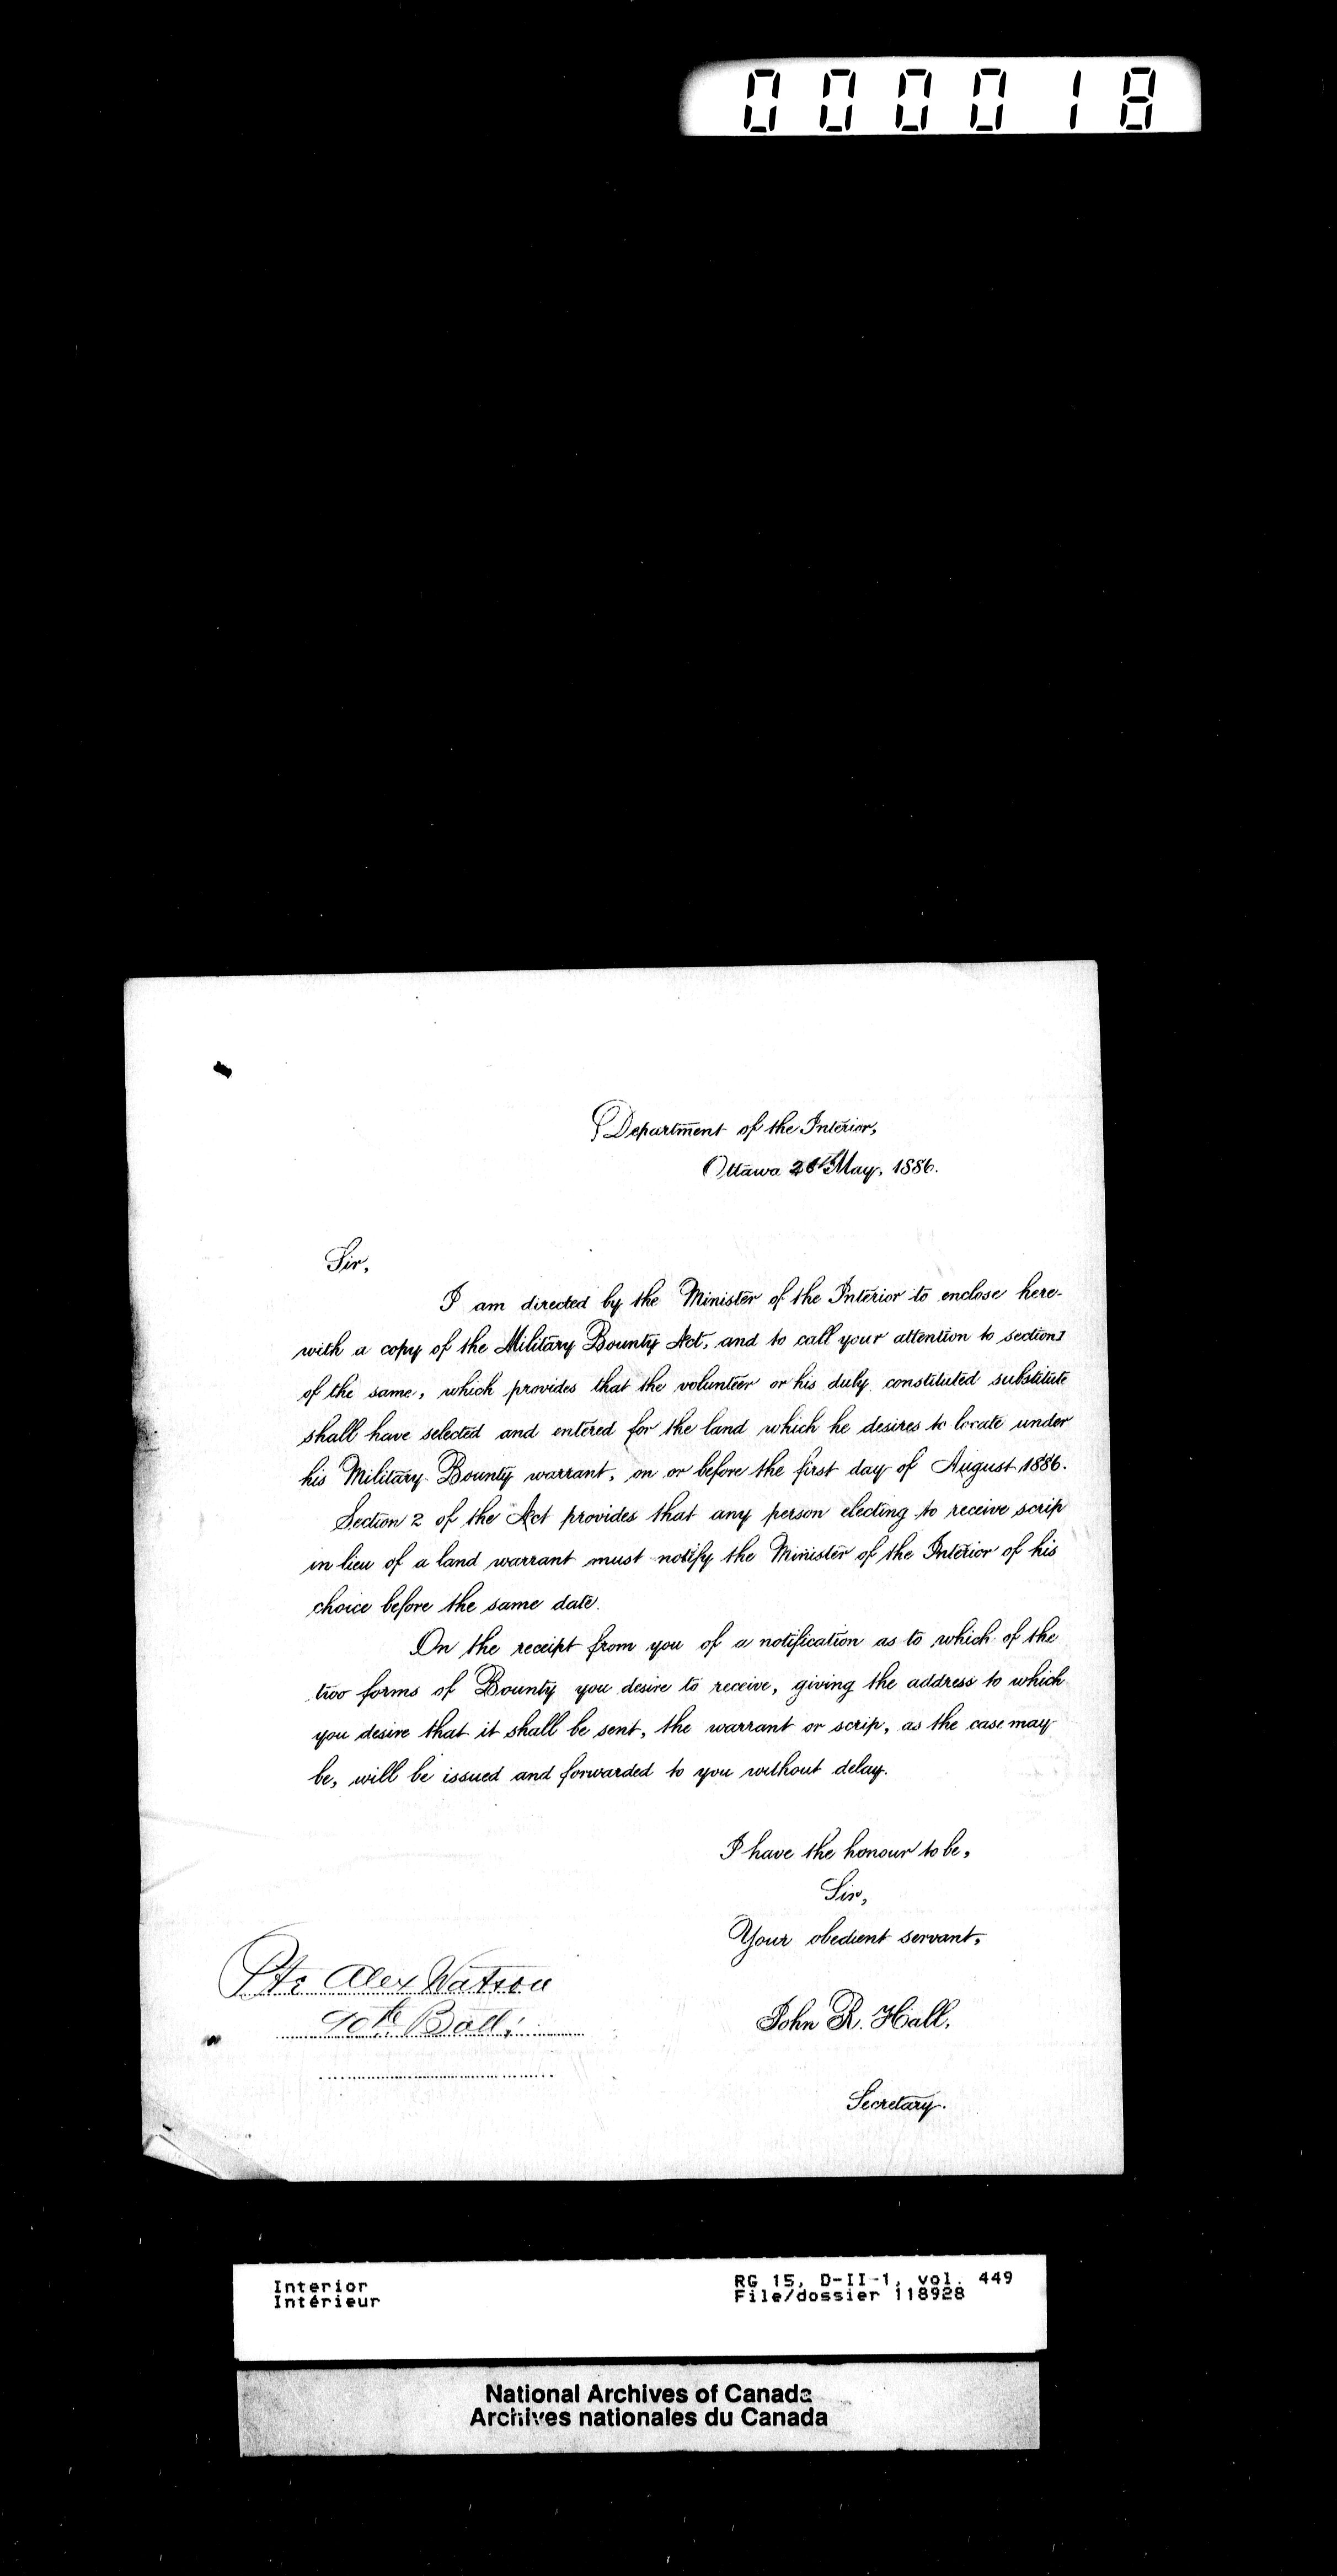 000018
Department of the Interior,
Ottawa May, 1886.
Sir,
I am directed by the Minister of the Interior to enclose here-
with a copy of the Military Bounty Act, and to call your attention to section 1
of the same, which provides that the volunteer or his duly constituted substitute
shall have selected and entered for the land which he desires to locate under
his Military Bounty warrant, on or before the first day of August 1886.
Section 2 of the Act provides that any person electing to receive scrip
in lieu of a land warrant must notify the Minister of the Interior of his
choice before the same date.
On the receipt from you of a notification as to which of the
two forms of Bounty you desire to receive, giving the address to which
you desire that it shall be sent, the warrant or scrip, as the case may
be, will be issued and forwarded to you without delay.
I have the honour to be,
Sir,
Your obedient servant,
Pte Alex Watson
90th Batt.
John R. Hall,
Secretary.
Interior
Intérieur
RG 15, D-II-1, vol. 449
File/dossier 118928
National Archives of Canada
Archives nationales du Canada